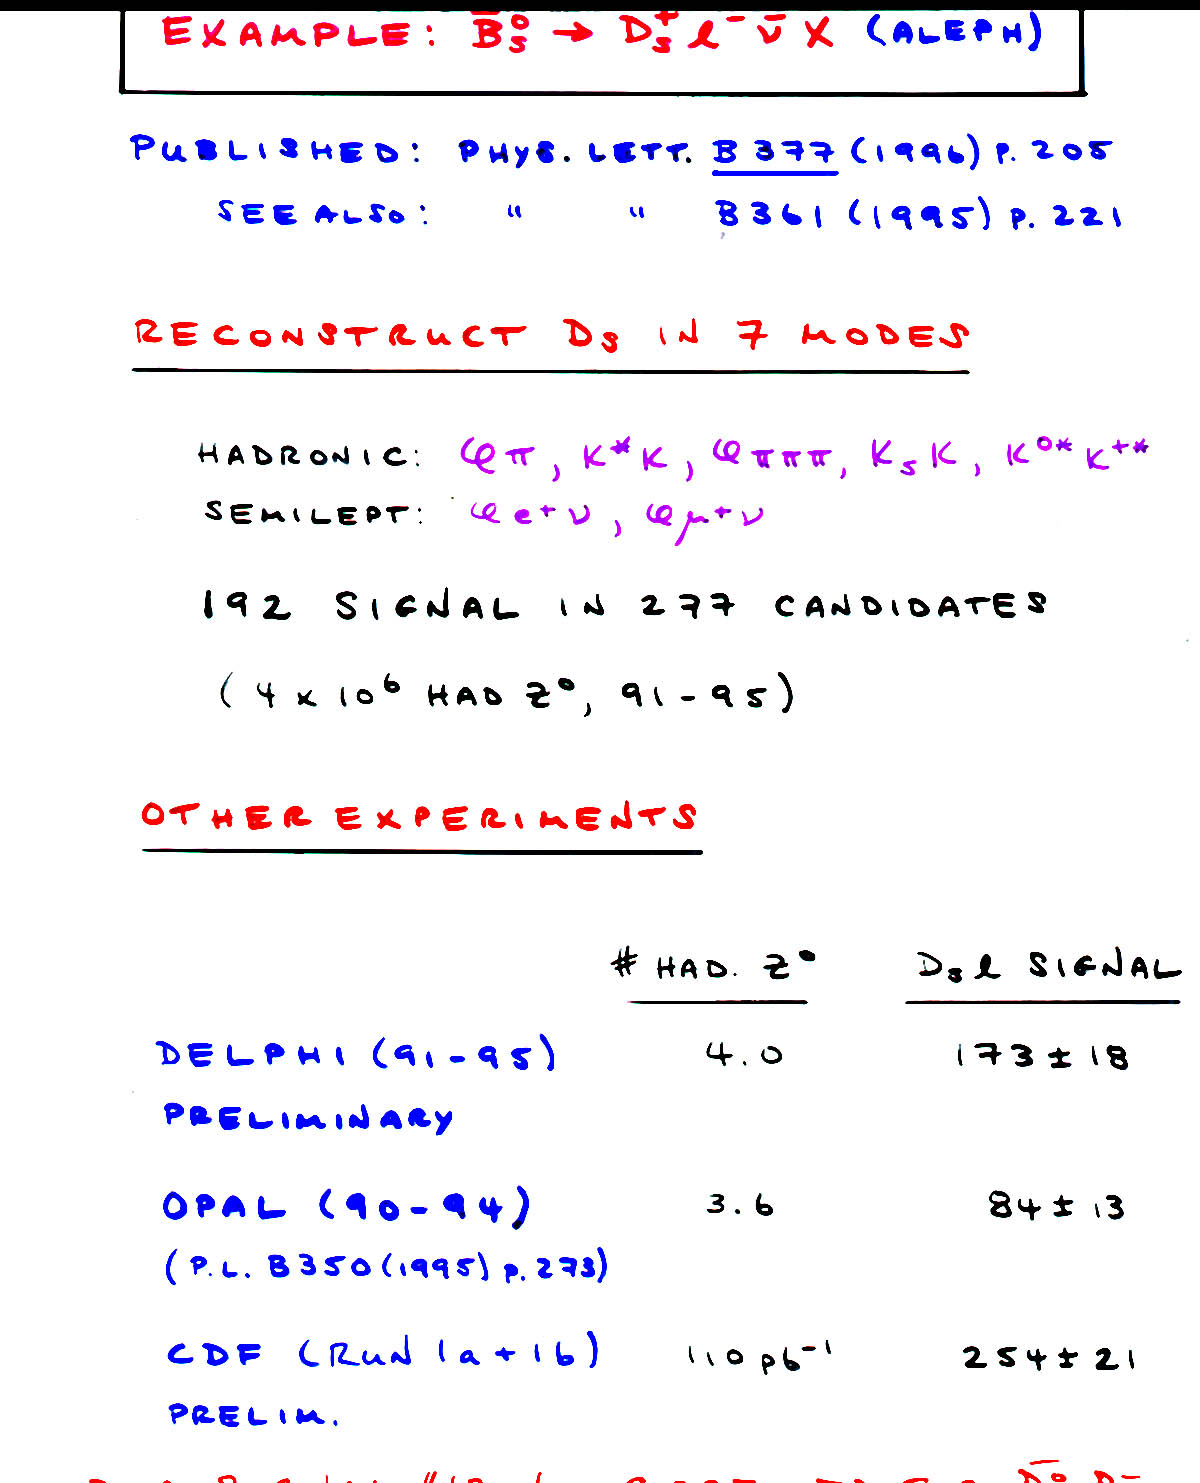 EXAMPLE: B̄⁰ₛ → Dₛ⁺ ℓ⁻ ν̄ X (ALEPH)
PUBLISHED: PHYS. LETT. B 377 (1996) P. 205
SEE ALSO: " " B 361 (1995) P. 221
RECONSTRUCT Dₛ IN 7 MODES
HADRONIC: φπ, K*K, φπππ, KₛK, K⁰*K⁺*
SEMILEPT: φe⁺ν, φμ⁺ν
192 SIGNAL IN 277 CANDIDATES
(4 x 10⁶ HAD Z⁰, 91-95)
OTHER EXPERIMENTS
# HAD. Z⁰ Dₛℓ SIGNAL
DELPHI (91-95) 4.0 173 ± 18
PRELIMINARY
OPAL (90-94) 3.6 84 ± 13
(P.L. B350 (1995) p. 273)
CDF (RUN 1a + 1b) 110 pb⁻¹ 254 ± 21
PRELIM.